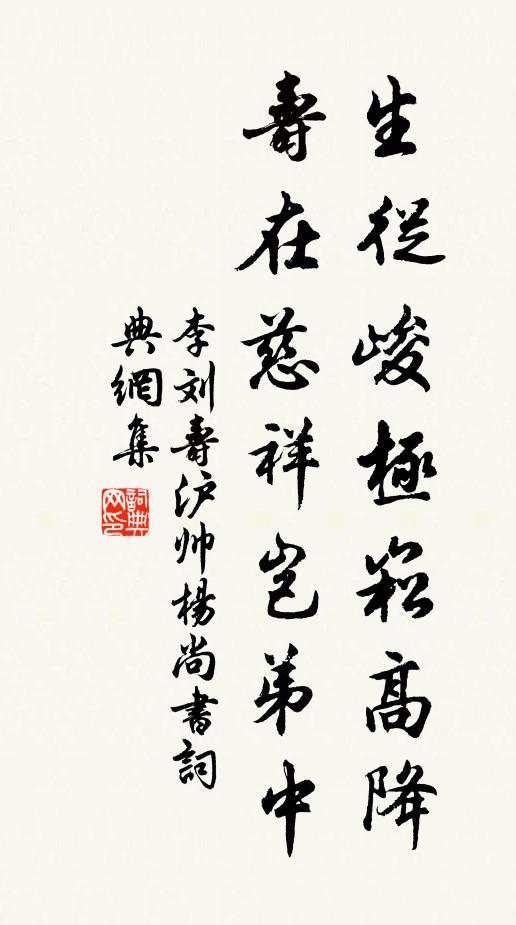 生從峻極崧高降
壽在慈祥岂弟中
李刘壽沪帅楊尚書詞
典網集
詞典
网印